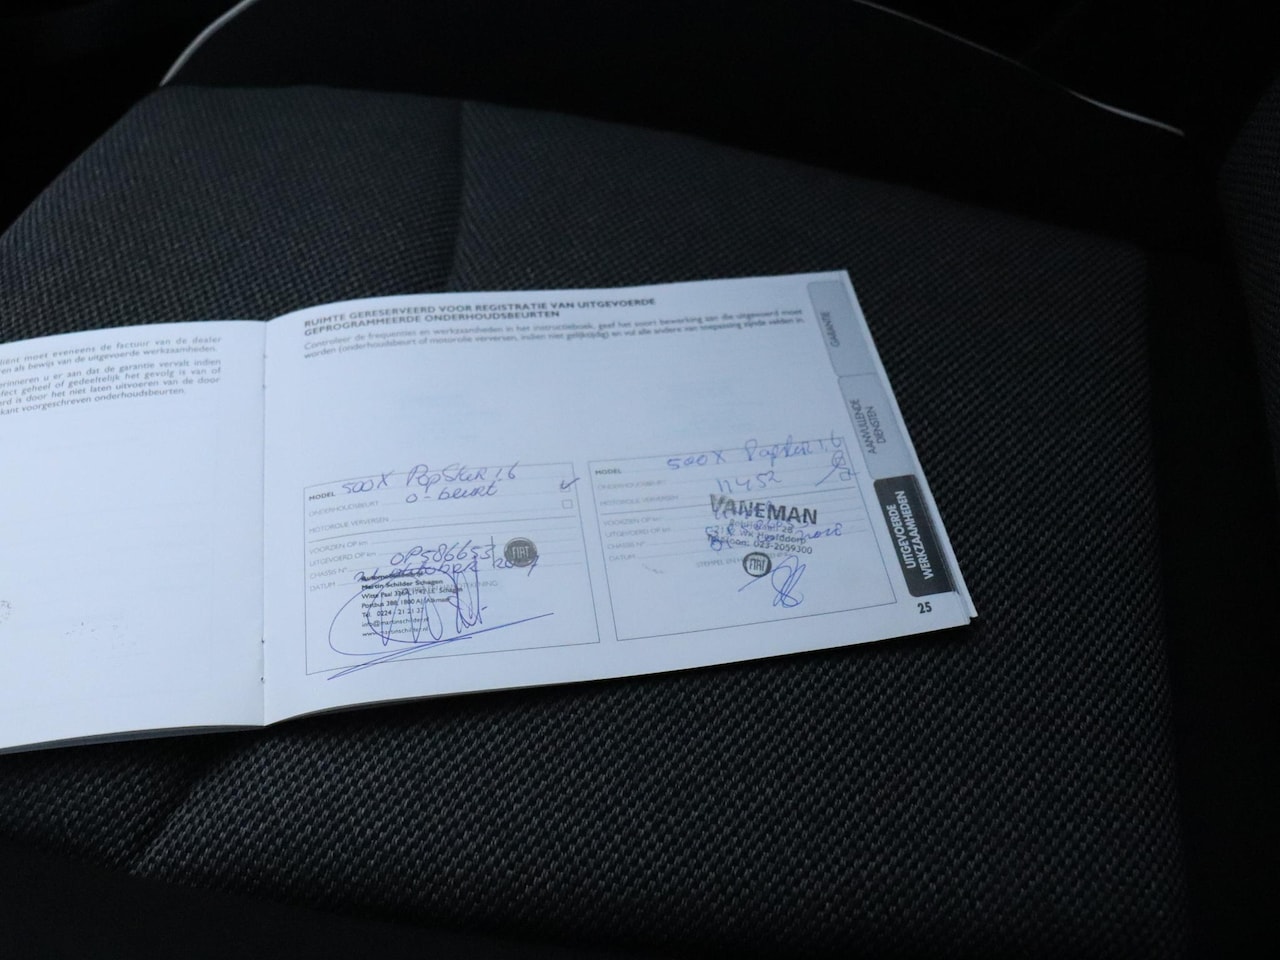 moet eveneens de factuur van de dealer
als bewijs van de uitgevoerde werkzaamheden.
u er aan dat de garantie vervalt indien
geheel of gedeeltelijk het gevolg is van of
is door het niet laten uitvoeren van de door
voorgeschreven onderhoudsbeurten.
RUIMTE GERESERVEERD VOOR REGISTRATIE VAN UITGEVOERDE
GEPROGRAMMEERDE ONDERHOUDSBEURTEN
Controleer de frequenties en werkzaamheden in het instructieboek, geef het soort bewerking aan die uitgevoerd moet
worden (onderhoudsbeurt of motorolie verversen, indien niet gelijktijdig) en vul alle andere van toepassing zijnde velden in
MODEL 500X PopSter 1.6
ONDERHOUDSBEURT 0-beurt
MOTOROLIE VERVERSEN
VOORZIEN OP km
UITGEVOERD OP km
CHASSIS N° 0P586653
DATUM
FIAT
Martin Schilder Schagen
Witte Paal 336A, 1742 LE Schagen
Postbus 388, 1800 AJ Alkmaar
Tel. 0224 - 21 21 37
info@martinschilder.nl
www.martinschilder.nl
MODEL 500X PopSter 1.6
ONDERHOUDSBEURT
MOTOROLIE VERVERSEN 11452
VANEMAN
VOORZIEN OP km
UITGEVOERD OP km
CHASSIS N°
DATUM
Hoofddorp
023-2059300
FIAT
GARANTIE
AANVULLENDE
DIENSTEN
UITGEVOERDE
WERKZAAMHEDEN
25